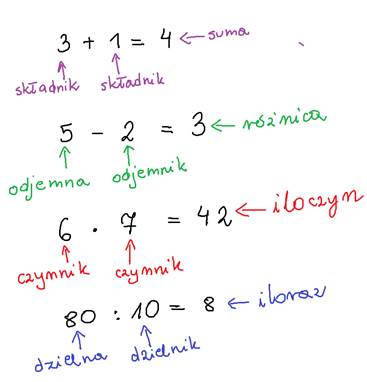 3 + 1 = 4 ← suma
składnik składnik
5 - 2 = 3 ← różnica
odjemna odjemnik
6 · 7 = 42 ← iloczyn
czynnik czynnik
80 : 10 = 8 ← iloraz
dzielna dzielnik